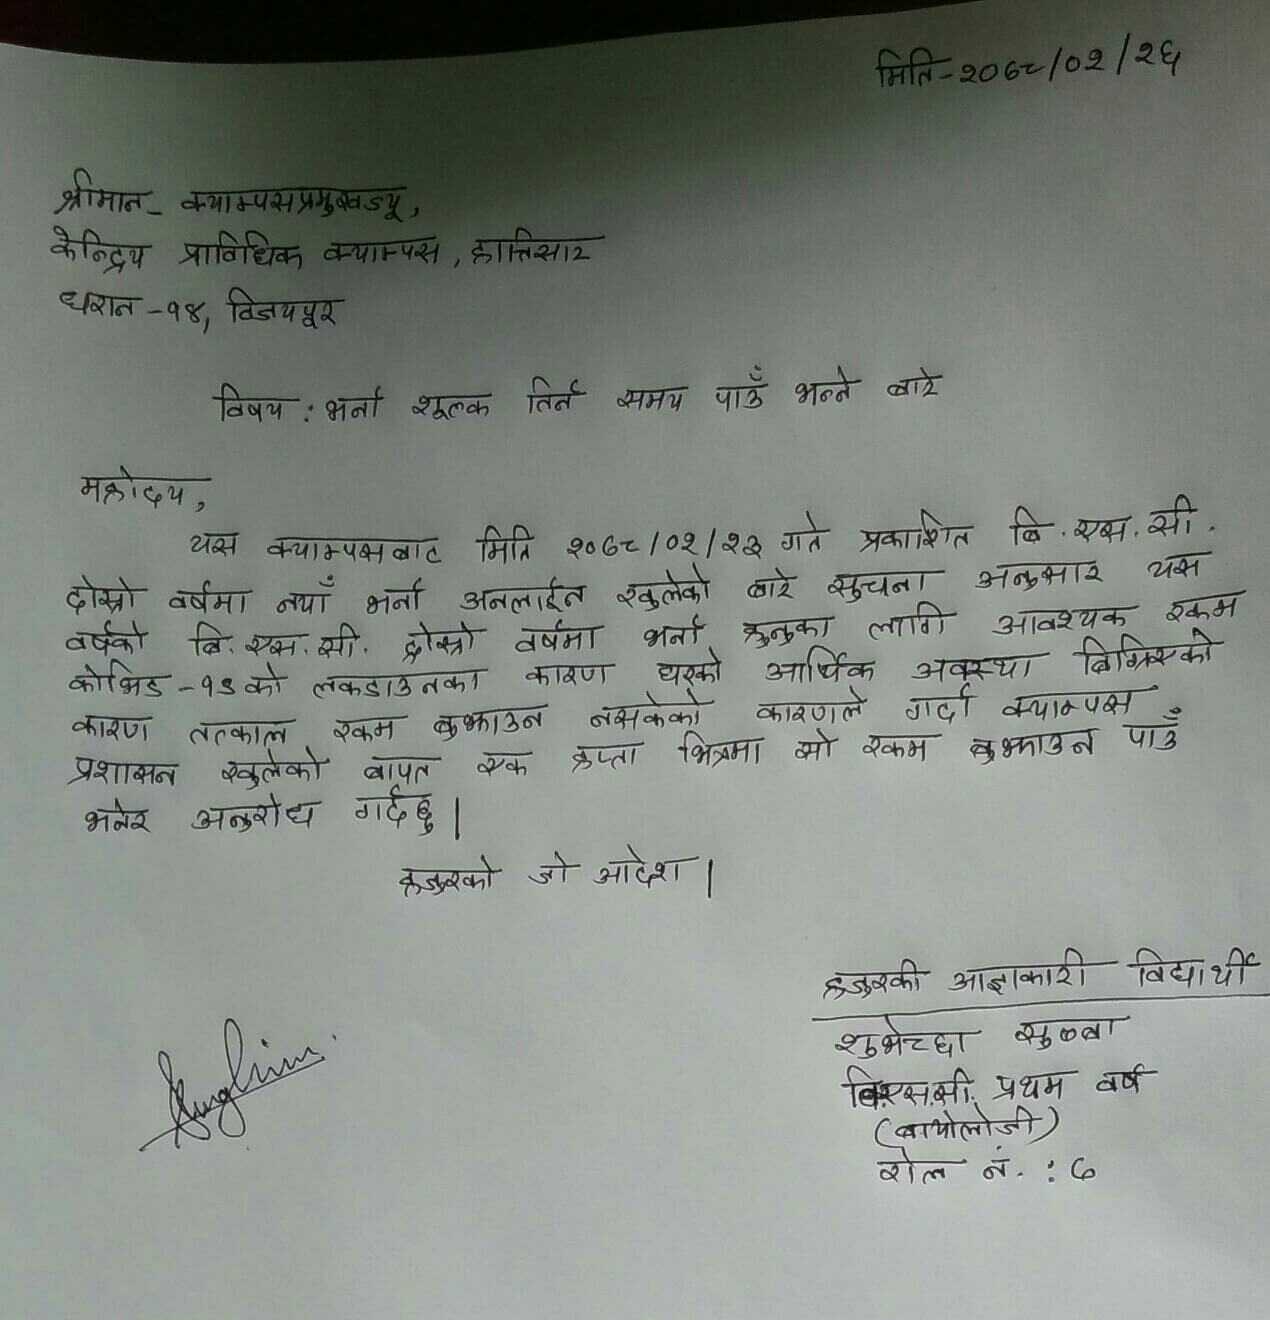 मिति-२०७८/०२/२६
श्रीमान- क्याम्पसप्रमुखज्यू,
केन्द्रिय प्राविधिक क्याम्पस, हात्तिसार
धरान-१४, विजयपूर
विषय : भर्ना शूल्क तिर्न समय पाउँ भन्ने बारे
महोदय,
यस क्याम्पसबाट मिति २०७८/०२/२३ गते प्रकाशित बि.एस.सी.
दोस्रो वर्षमा नयाँ भर्ना अनलाईन खुलेको बारे सुचना अनुसार यस
वर्षको बि.एस.सी. दोस्रो वर्षमा भर्ना हुनुका लागि आवश्यक रकम
कोभिड-१९ को लकडाउनका कारण घरको आर्थिक अवस्था बिग्रिएको
कारण तत्काल रकम बुझाउन नसकेको कारणले गर्दा क्याम्पस
प्रशासन खुलेको बापत एक हप्ता भित्रमा सो रकम बुझाउन पाउँ
भनेर अनुरोध गर्दछु।
हजुरको जो आदेश।
हजुरकी आज्ञाकारी विद्यार्थी
शुभेच्छा
बि.एस.सी. प्रथम वर्ष
(बायोलोजी)
रोल नं. : ७